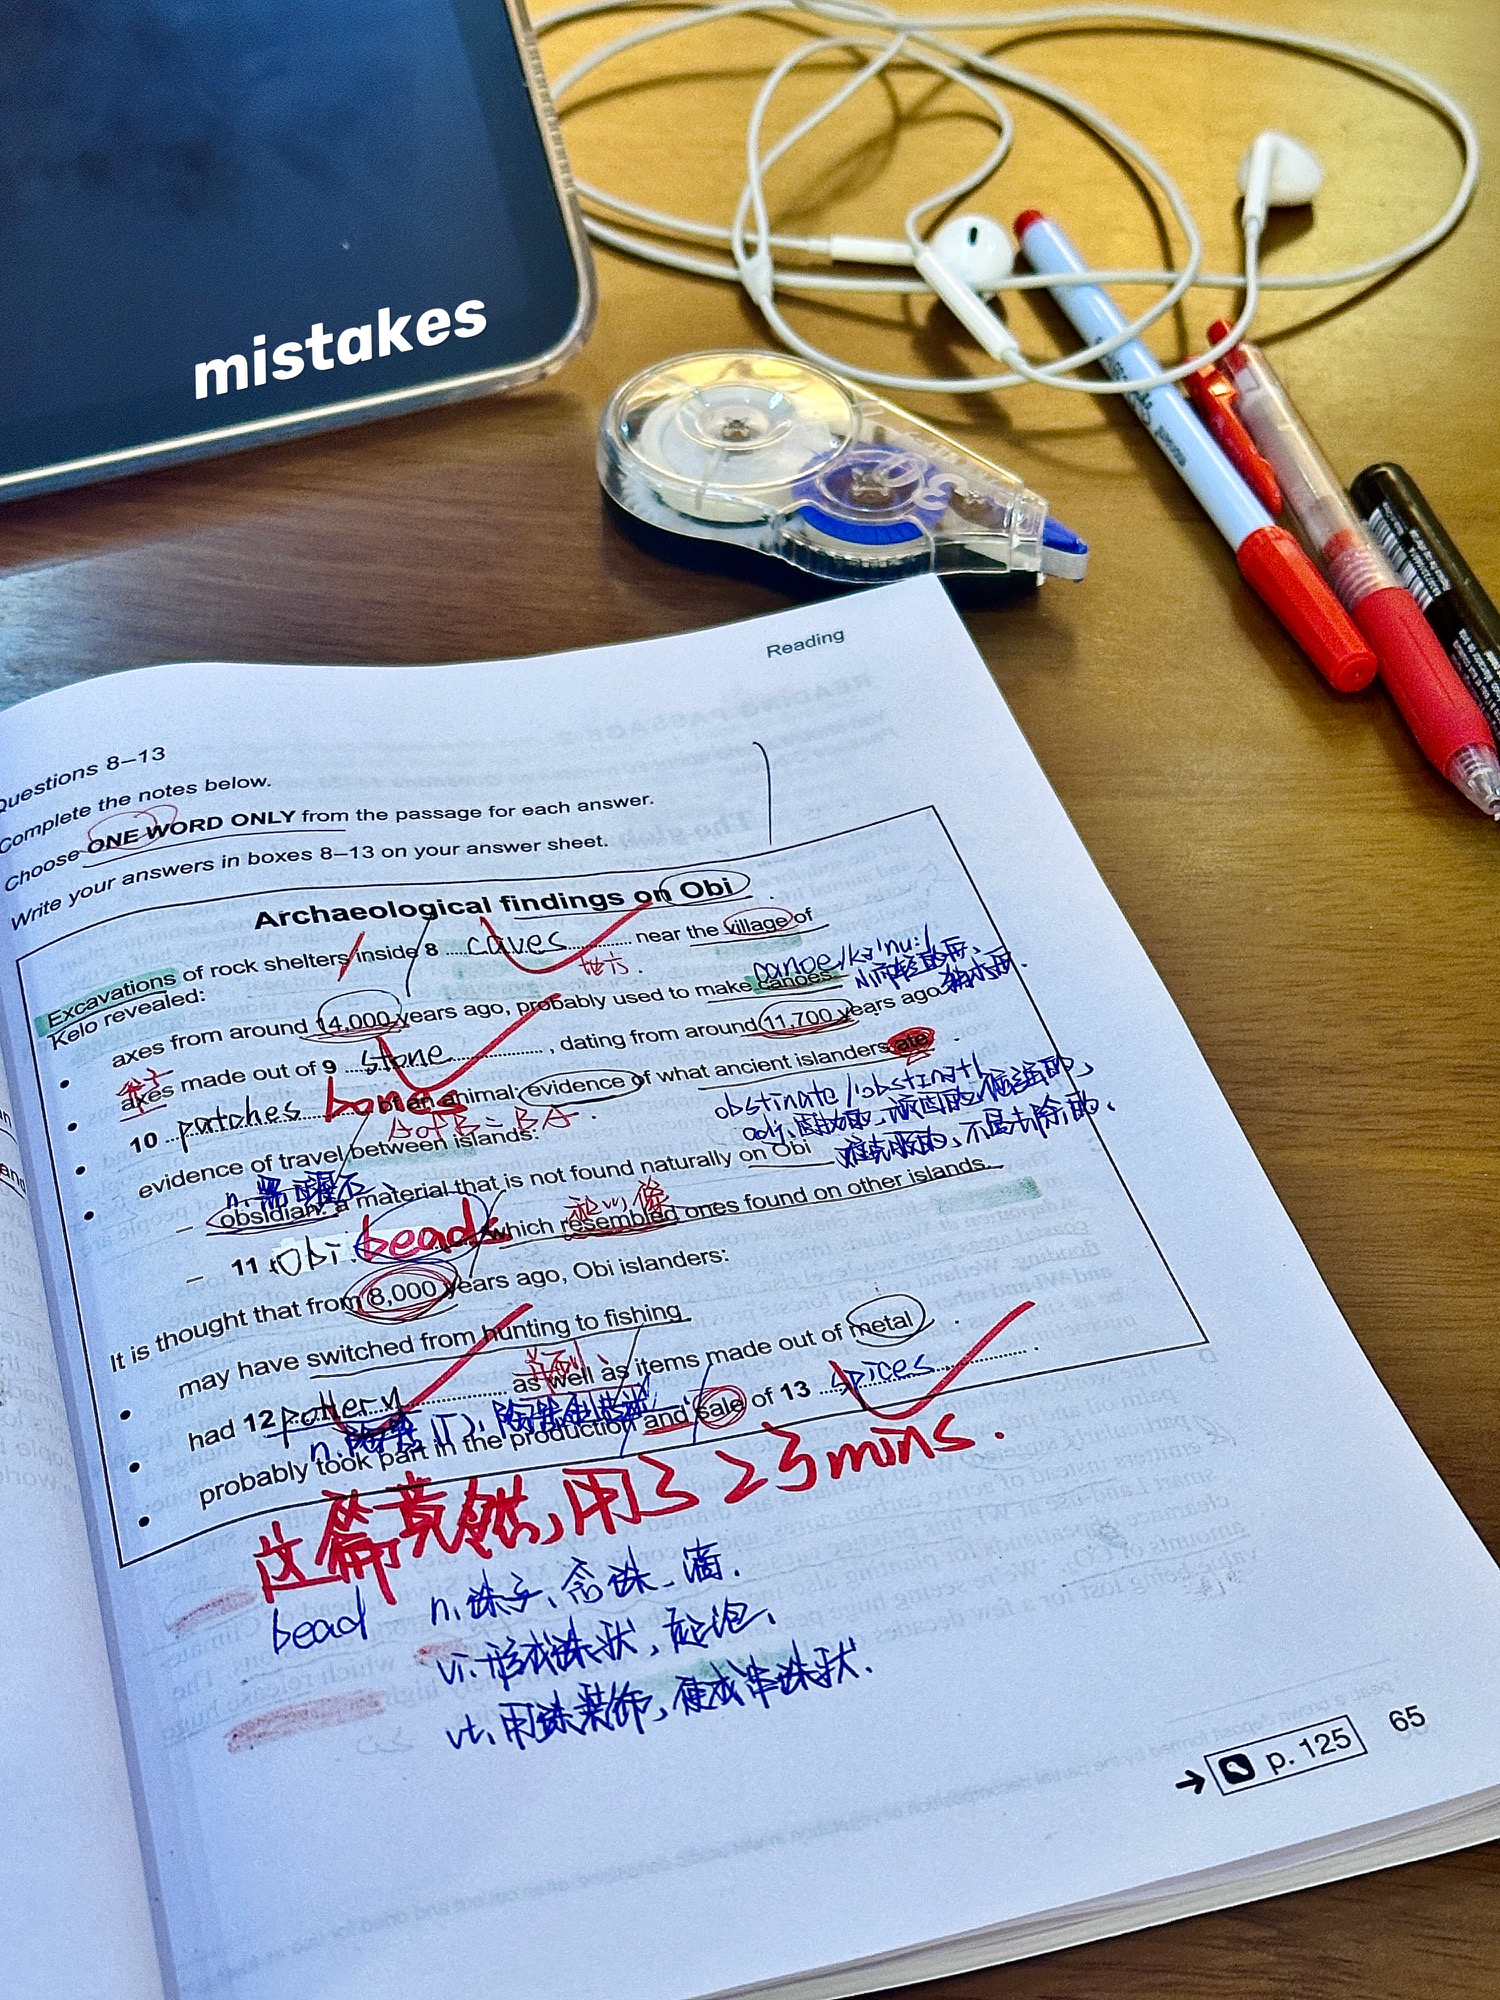 mistakes
Reading
Questions 8–13
Complete the notes below.
Choose ONE WORD ONLY from the passage for each answer.
Write your answers in boxes 8–13 on your answer sheet.
Archaeological findings on Obi
Excavations of rock shelters inside 8 caves near the village of
Kelo revealed:
地方.
canoe /kə'nu:/
n.
axes from around 14,000 years ago, probably used to make canoes
斧子
axes made out of 9 stone, dating from around 11,700 years ago
10 patches bones of an animal: evidence of what ancient islanders ate
A of B = BA.
obstinate /'ɒbstɪnət/
adj.
evidence of travel between islands:
n. 黑曜石
– obsidian: a material that is not found naturally on Obi
– 11 Obi. beads which resembled ones found on other islands.
It is thought that from 8,000 years ago, Obi islanders:
may have switched from hunting to fishing
had 12 pottery as well as items made out of metal
n.
probably took part in the production and sale of 13 spices.
这篇竟然,用了23mins.
bead n. 珠子、念珠、滴.
vi. 形成珠状,起泡.
vt. 用珠装饰,使成串珠状.
p. 125
65